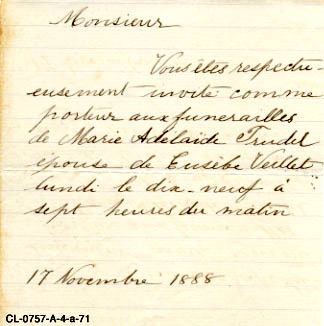 Monsieur
Vous êtes respectu-
eusement invité comme
porteur aux funerailles
de Marie Adelaide Trudel
épouse de Eusèbe Veillet
lundi le dix-neuf à
sept heures du matin
17 Novembre 1888
CL-0757-A-4-a-71